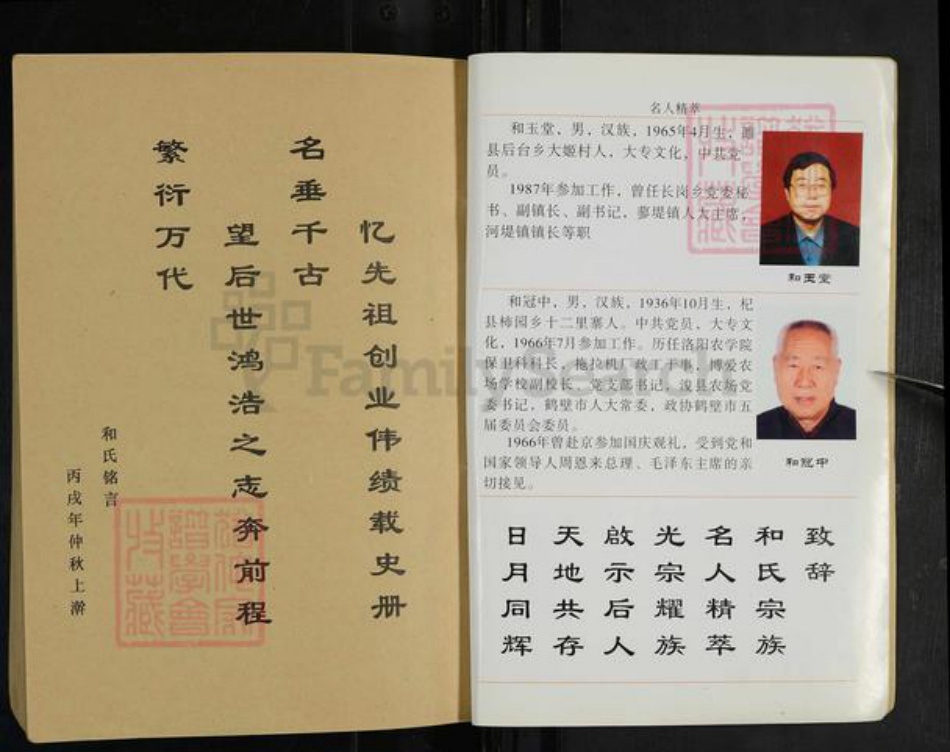 忆先祖创业伟绩载史册
名垂千古
望后世鸿浩之志奔前程
繁衍万代
和氏铭言
丙戌年仲秋上澣
FamilySearch
名人精萃
和玉堂，男，汉族，1965年4月生，睢
县后台乡大姬村人，大专文化，中共党
员。
1987年参加工作，曾任长岗乡党委秘
书、副镇长、副书记，蓼堤镇人大主席，
河堤镇镇长等职
和玉堂
和冠中，男，汉族，1936年10月生，杞
县柿园乡十二里寨人。中共党员，大专文
化，1966年7月参加工作。历任洛阳农学院
保卫科科长、拖拉机厂政工干事，博爱农
场学校副校长、党支部书记，浚县农场党
委书记，鹤壁市人大常委，政协鹤壁市五
届委员会委员。
1966年曾赴京参加国庆观礼，受到党和
国家领导人周恩来总理、毛泽东主席的亲
切接见。
和冠中
致辞
和氏宗族
名人精萃
光宗耀族
啟示后人
天地共存
日月同辉